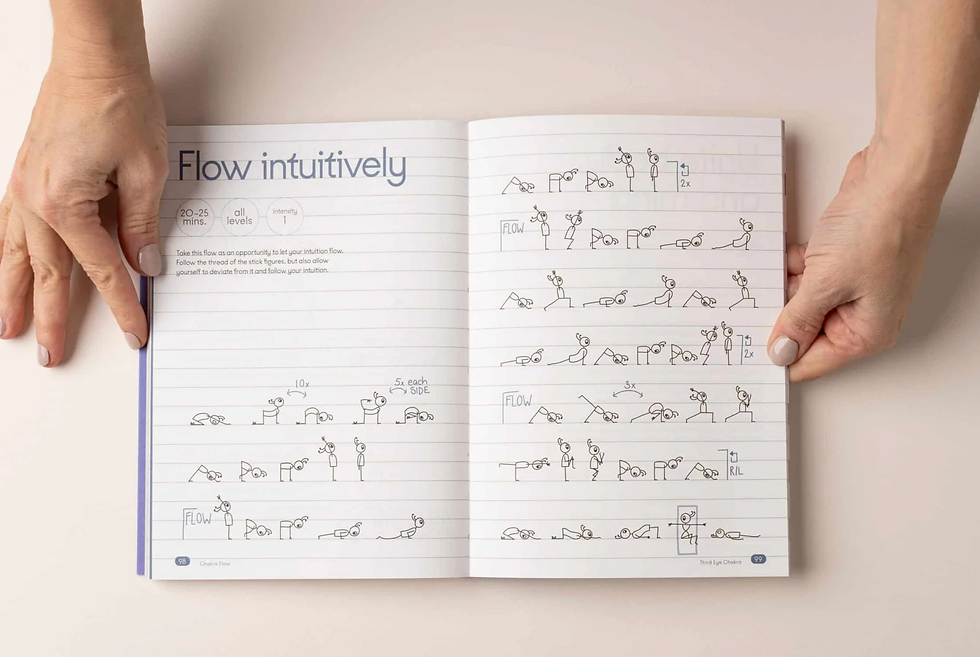 Flow intuitively
20-25
mins.
all
levels
intensity
1
Take this flow as an opportunity to let your intuition flow.
Follow the thread of the stick figures, but also allow
yourself to deviate from it and follow your intuition.
10x
5x each
SIDE
FLOW
98
Chakra Flow
2x
FLOW
2x
FLOW
3x
R/L
Third Eye Chakra
99